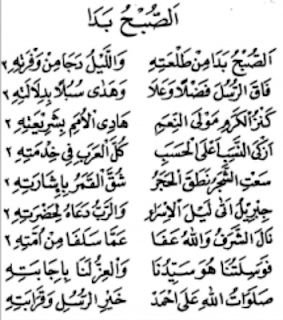 اَلصُّبْحُ بَدَا
اَلصُّبْحُ بَدَا مِنْ طَلْعَتِهِ وَاللَّيْلُ دَجَا مِنْ وَفْرَتِهِ ٢
فَاقَ الرُّسُلَ فَضْلًا وَعَلَا وَهَدَى سُبُلًا بِدِلَالَتِهِ ٢
كَنْزُ الْكَرَمِ مَوْلَى النِّعَمِ هَادِى الْأُمَمِ بِشَرِيْعَتِهِ ٢
اَزْكَى النَّسَبِ اَعْلَى الْحَسَبِ كُلُّ الْعَرَبِ فِى خِدْمَتِهِ ٢
سَعَتِ الشَّجَرُ نَطَقَ الْحَجَرُ شُقَّ الْقَمَرُ بِإِشَارَتِهِ ٢
جِبْرِيْلُ اَتَى لَيْلَ الْاِسْرَا وَالرَّبُّ دَعَاهُ لِحَضْرَتِهِ ٢
نَالَ الشَّرَفُ وَاللهُ عَفَا عَمَّا سَلَفَا مِنْ اُمَّتِهِ ٢
فَوَسِيْلَتُنَا هُوَ سَيِّدُنَا وَالْعِزُّ لَنَا بِإِجَابَتِهِ
صَلَوَاتُ اللهِ عَلَى اَحْمَدَ خَيْرِ الرُّسُلِ وَقَرَابَتِهِ